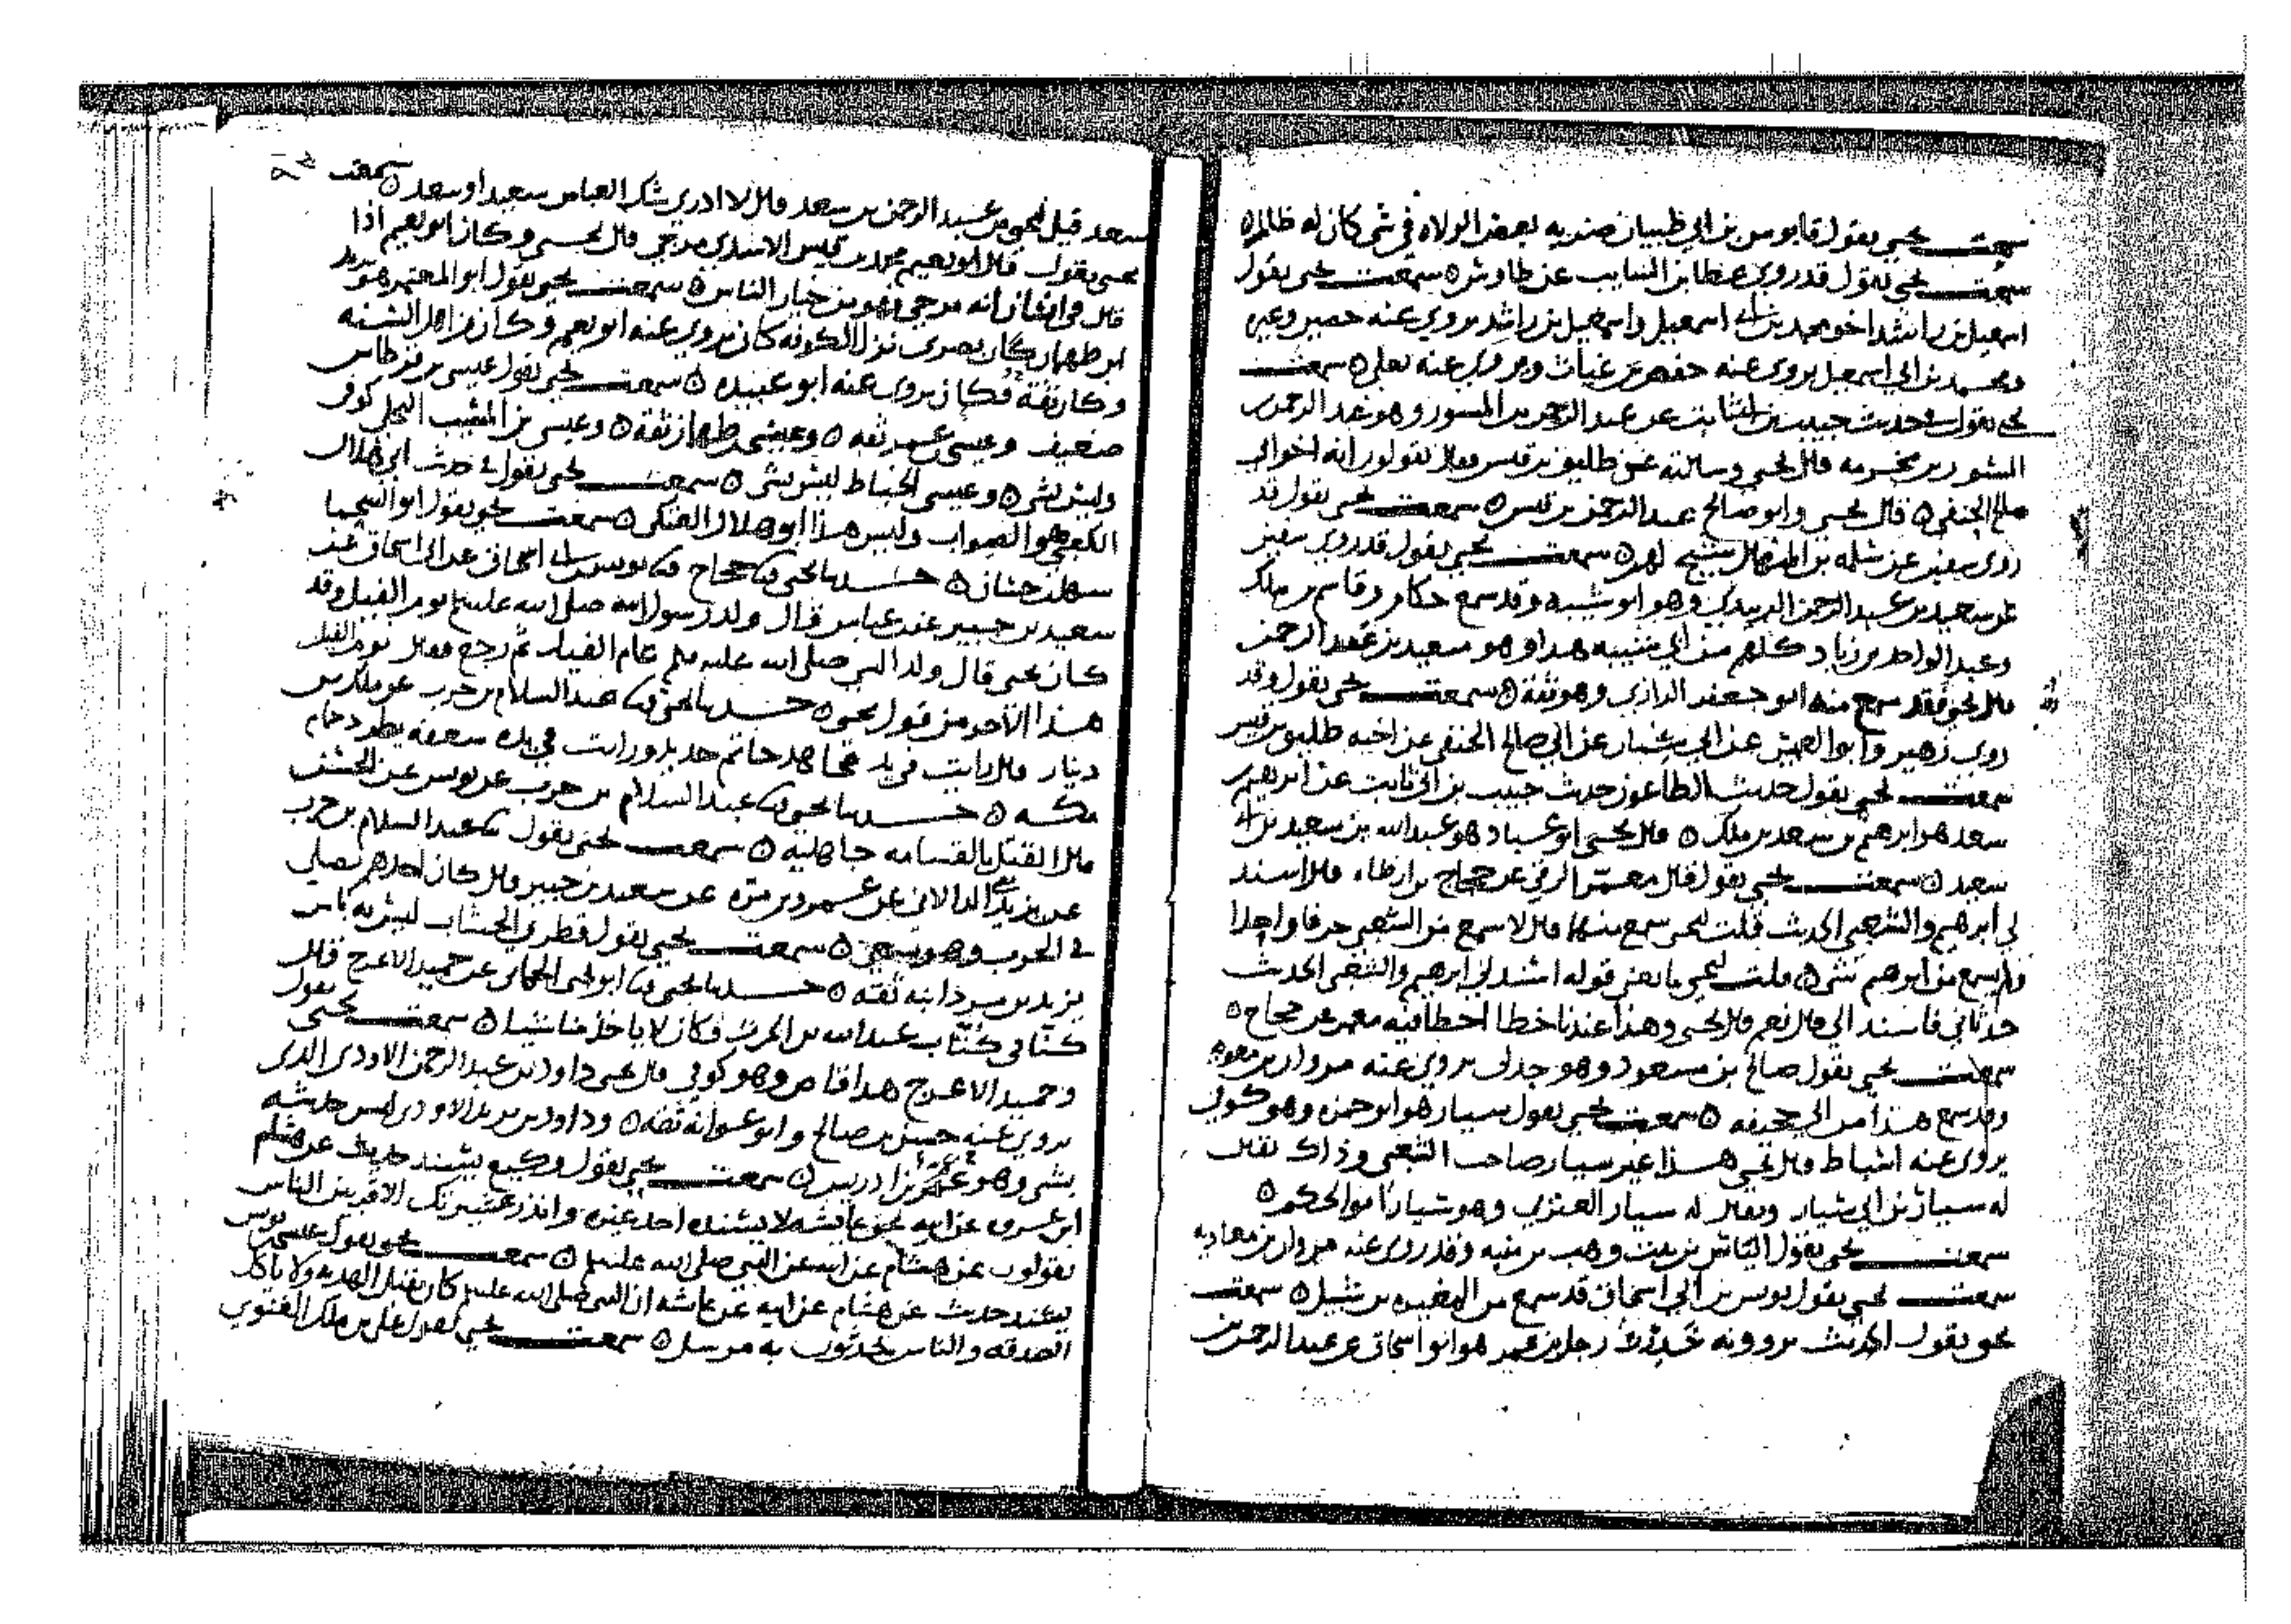 سمعت يحيى يقول قابوس بن ابي ظبيان ضربه بعض الولاه في شي كان له ظالما ه
سمعت يحيى يقول قد روى عطا بن السايب عن طاوس ه سمعت يحيى يقول
اسمعيل بن راشد اخو محمد بن ابي اسمعيل واسمعيل بن راشد يروي عنه حصين وغيره
ومحمد بن ابي اسمعيل يروى عنه حفص بن غياث ويروي عنه يعلى ه سمعت
يحيى يقول في حديث حبيب بن ابي ثابت عن عبد الرحمن بن المسور وهو عبد الرحمن بن
المسور بن مخرمه قال يحيى وسالته عن طليق بن قيس فقال يقولون انه اخو ابي
صالح الحنفي ه قال يحيى وابو صالح عبد الرحمن بن قيس ه سمعت يحيى يقول قد
روى سفين عن سلمه بن المنهال شيخ لهم ه سمعت يحيى يقول قد روى سفين
عن سعيد بن عبد الرحمن الزبيدي وهو ابو شيبه وقد سمع حكام وقاسم بن ملك
وعبد الواحد بن زياد كلهم من ابي شيبه هذا وهو سعيد بن عبد الرحمن
قال يحيى وقد سمع منه ابو جعفر الرازي وهو ثقة ه سمعت يحيى يقول وقد
روى زهير وابو العميس عن ابي عن ابي صالح الحنفي عن اخيه طليق بن قيس
سمعت يحيى يقول حديث الطاعون حديث حبيب بن ابي ثابت عن ابرهيم بن
سعد هو ابرهيم بن سعد بن ملك ه قال يحيى ابو عباد هو عبد الله بن سعيد بن ابي
سعيد ه سمعت يحيى يقول قال معمر الرقي عن حجاج بن ارطاه قال اسند
لي ابرهيم والشعبي الحديث قلت ليحيى سمع منهما قال لا سمع من الشعبي حرفا واحدا
ولم يسمع من ابرهيم شي ه قلت ليحيى ما يعني قوله اسند لي ابرهيم والشعبي الحديث
حدثاني فاسند الي قال نعم قال يحيى وهذا عندنا خطا اخطا فيه معمر عن حجاج ه
سمعت يحيى يقول صالح بن مسعود وهو جدلي يروي عنه مروان بن معويه
وقد سمع هذا من ابي جحيفه ه سمعت يحيى يقول سيار هو ابو حمزه وهو كوفي
يروى عنه اسباط قال يحيى هذا غير سيار صاحب الشعبي وذاك يقال
له سيار بن ابي سيار ويقال له سيار العنزي وهو سيار ابو الحكم ه
سمعت يحيى يقول الياس بن بنت وهب بن منبه وقد روى عنه مروان بن معاويه
سمعت يحيى يقول يونس بن ابي اسحاق قد سمع من المغيره بن شبل ه سمعت
يحيى يقول الحديث يروونه عن رجل بن عمير هو ابو اسحاق عن عبد الرحمن بن
سعد قيل ليحيى من عبد الرحمن بن سعد قال لا ادري شك العباس سعيد او سعد ه سمعت
يحيى يقول قال ابو نعيم محمد بن قيس الاسدي مرجي قال يحيى وكان ابو نعيم اذا
قال في انسان انه مرجي فهو من خيار الناس ه سمعت يحيى يقول ابو المعتمر هو يزيد
بن طهمان كان بصرى نزل الكوفه كان يروي عنه ابو نعيم وكان من اهل السنه
وكان ثقة وكان يروى عنه ابو عبيده ه سمعت يحيى يقول عيسى بن قرطاس
ضعيف وعيسى بن عمر ثقه ه وعيسى بن طهمان ثقة ه وعيسى بن المسيب البجلي كوفي
وليس بشي ه وعيسى الحناط ليس بشي ه سمعت يحيى يقول في حديث ابي هلال
الكعبي هو الصواب وليس هذا ابو هلال العتكي ه سمعت يحيى يقول ابو السحما
سهل بن حسان ه حدثنا يحيى نا حجاج نا يونس بن ابي اسحاق عن ابي اسحاق عن
سعيد بن جبير عن بن عباس قال ولد رسول الله صلى الله عليه وسلم يوم الفيل وقد
كان يحيى قال ولد النبي صلى الله عليه وسلم عام الفيل ثم رجع فقال يوم الفيل
هذا الاخر من قول يحيى ه حدثنا يحيى نا عبد السلام بن حرب عن ملك بن
دينار قال رايت في يد مجاهد خاتم حديد ورايت في يده سعفه يطرد حمام
مكه ه حدثنا يحيى نا عبد السلام بن حرب عن يونس عن الحسن
قال القتل بالقسامه جاهليه ه سمعت يحيى يقول نا عبد السلام بن حرب
عن يزيد الدالاني عن عمرو بن مره عن سعيد بن جبير قال كان احدهم يصلي
في الحرب وهو يسعى ه سمعت يحيى يقول قطري الخشاب ليس به باس
يزيد بن مردانبه ثقه ه حدثنا يحيى نا ابو يحيى الحماني عن حميد الاعرج قال
كنا في كتاب عبد الله بن الحرث فكان لا ياخذ منا شيا ه سمعت يحيى يقول
وحميد الاعرج هذا قاص وهو كوفي قال يحيى داود بن عبد الرحمن الاودي الذي
يروي عنه حسن بن صالح وابو عوانه ثقه ه وداود بن يزيد الاودي ليس حديثه
بشي وهو عم بن ادريس ه سمعت يحيى يقول وكيع يسند حديث عن هشام
بن عروه عن ابيه عن عايشه لا يسنده احد غيره وانذر عشيرتك الاقربين الناس
يقولون عن هشام عن ابيه عن النبي صلى الله عليه وسلم ه سمعت يحيى يقول عيسى بن يونس
يسند حديث عن هشام عن ابيه عن عايشه ان النبي صلى الله عليه كان يقبل الهديه ولا ياكل
الصدقه والناس يحدثون به مرسل ه سمعت يحيى يقول يعلى بن ملك الغنوي